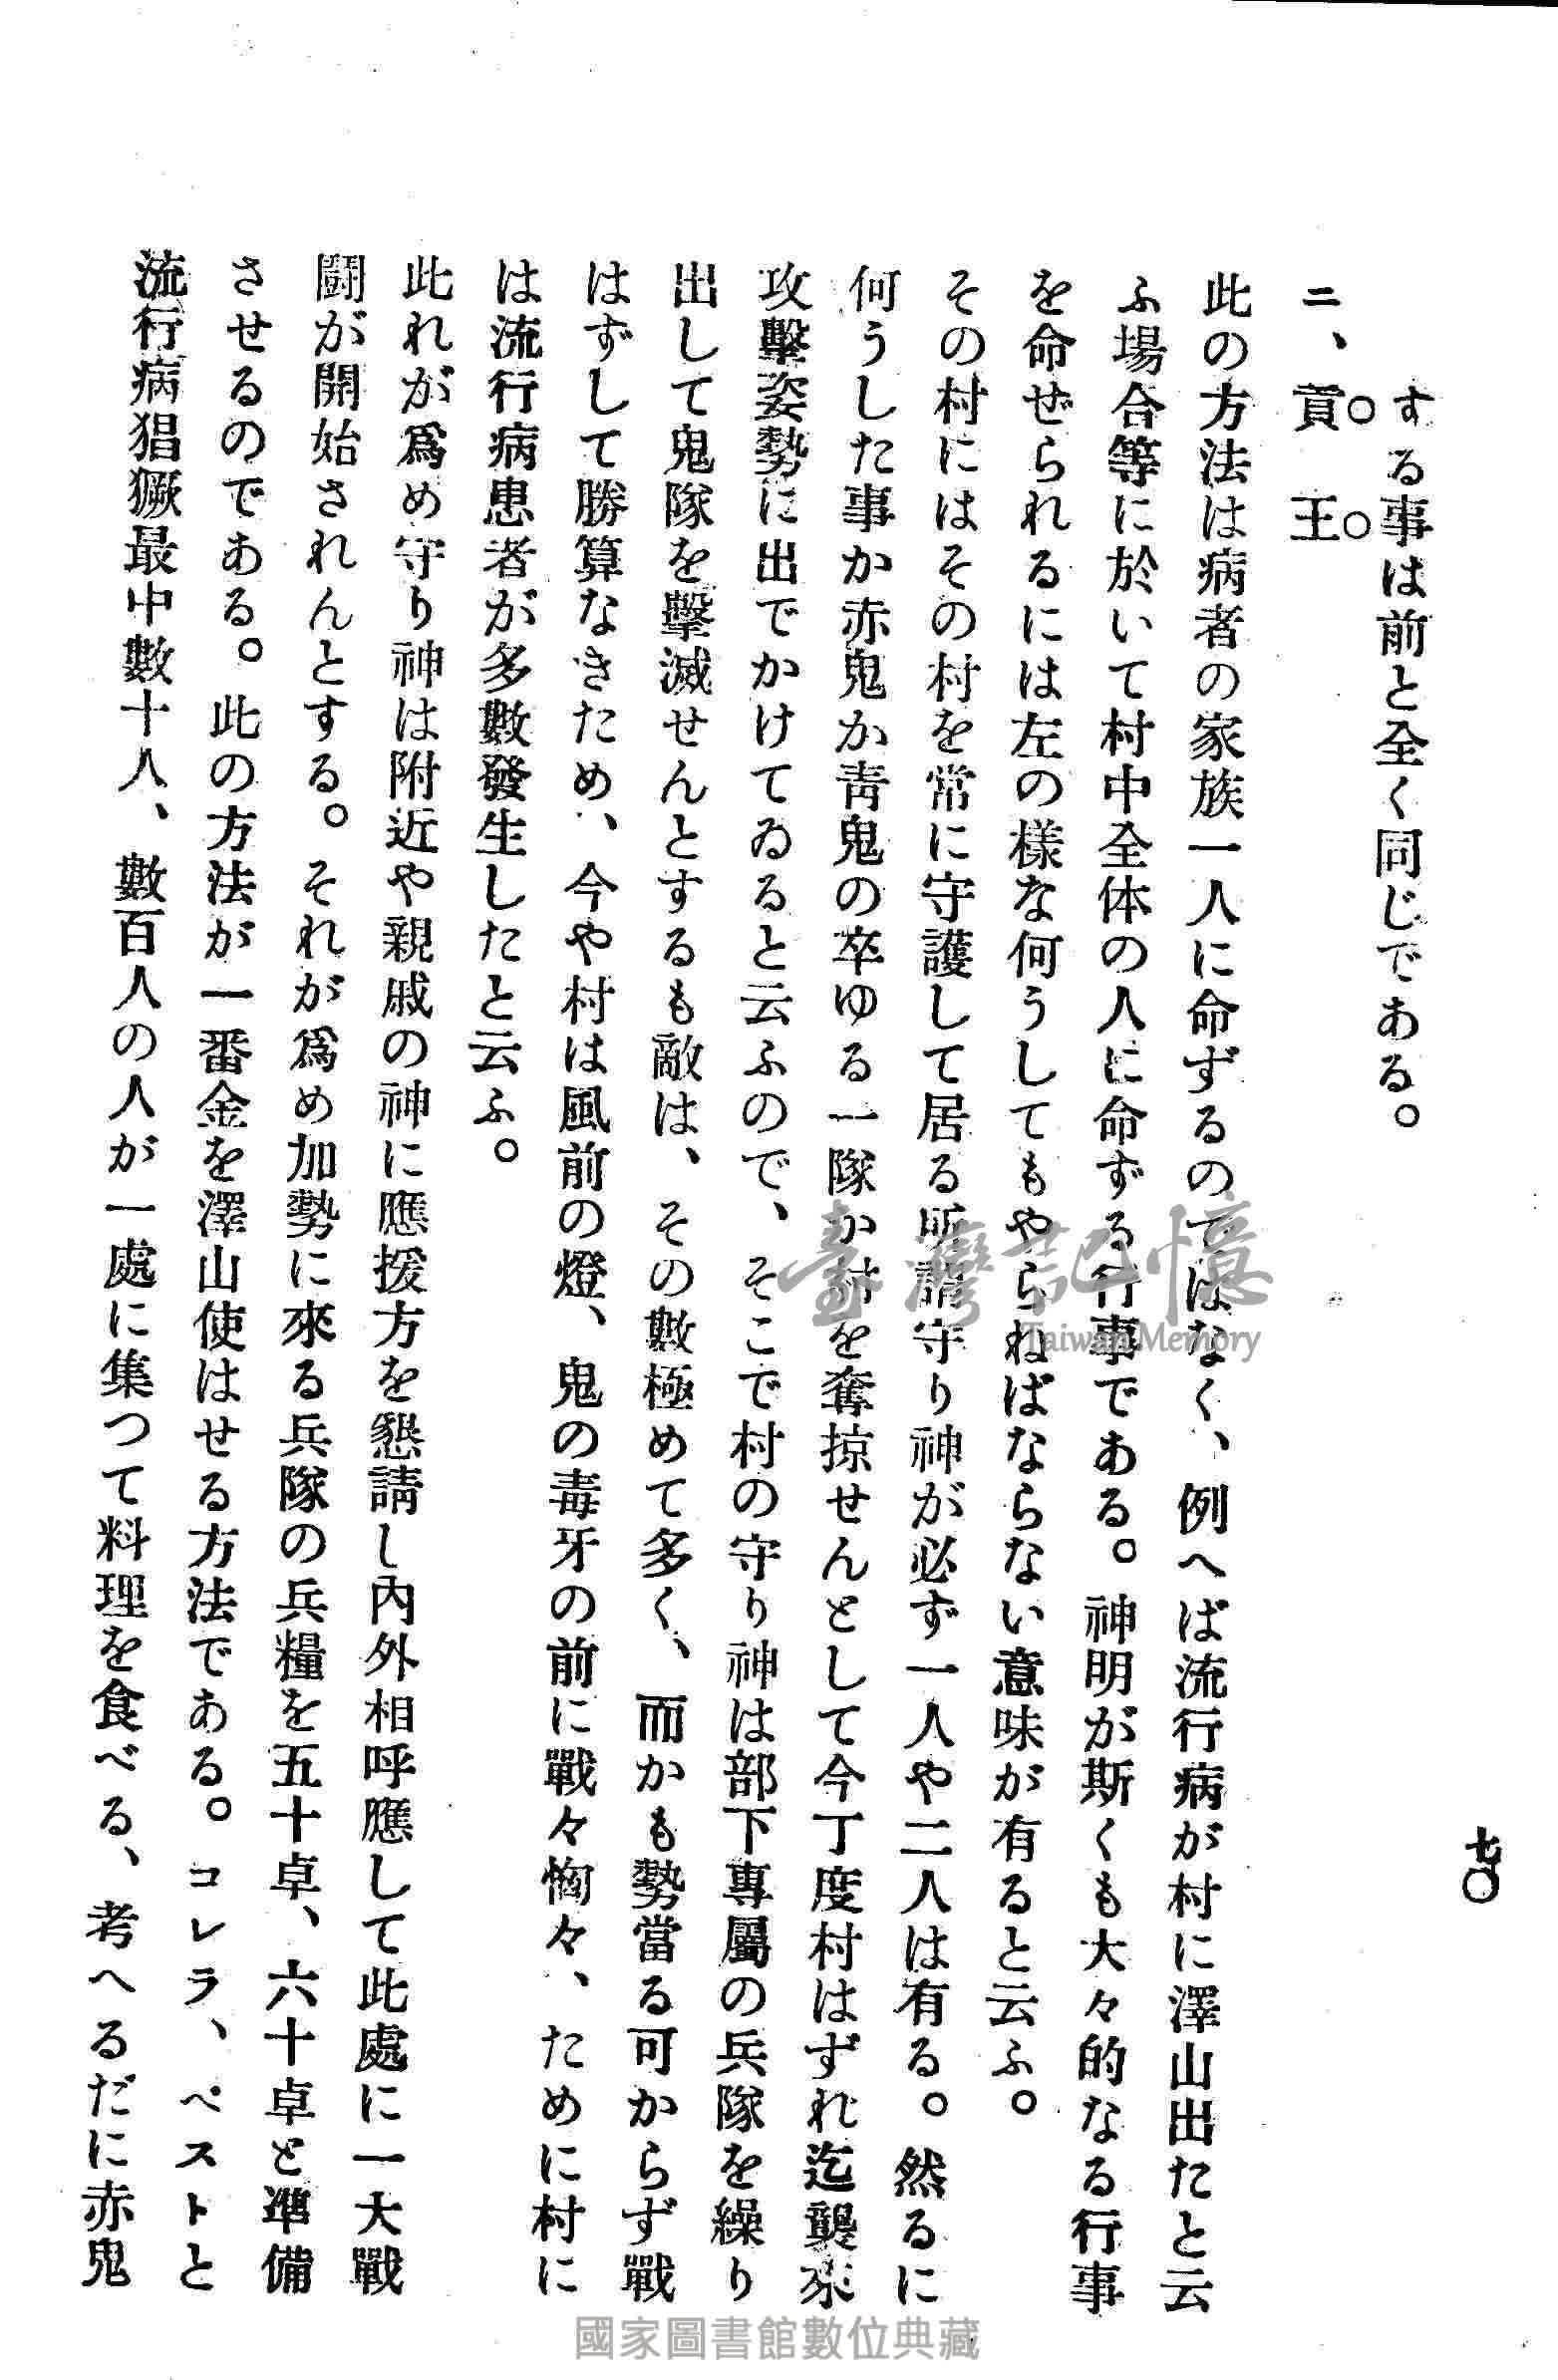 七〇
する事は前と全く同じである。
ニ、貢王
此の方法は病者の家族一人に命ずるのではなく、例へば流行病が村に澤山出たと云
ふ場合等に於いて村中全体の人に命ずる行事である。神明が斯くも大々的なる行事
を命ぜられるには左の樣な何うしてもやらねばならない意味が有ると云ふ。
その村にはその村を常に守護して居る所謂守り神が必ず一人や二人は有る。然るに
何うした事か赤鬼か靑鬼の卒ゆる一隊か村を奪掠せんとして今丁度村はずれ迄襲來
攻擊姿勢に出でかけてゐると云ふので、そこで村の守り神は部下專屬の兵隊を繰り
出して鬼隊を擊滅せんとするも敵は、その數極めて多く、而かも勢當る可からず戰
はずして勝算なきため、今や村は風前の燈、鬼の毒牙の前に戰々恟々、ために村に
は流行病患者が多數發生したと云ふ。
此れが爲め守り神は附近や親戚の神に應援方を懇請し內外相呼應して此處に一大戰
鬪が開始されんとする。それが爲め加勢に來る兵隊の兵糧を五十卓、六十卓と準備
させるのである。此の方法が一番金を澤山使はせる方法である。コレラ、ペストと
流行病猖獗最中數十人、數百人の人が一處に集つて料理を食べる、考へるだに赤鬼
臺灣記憶
Taiwan Memory
國家圖書館數位典藏